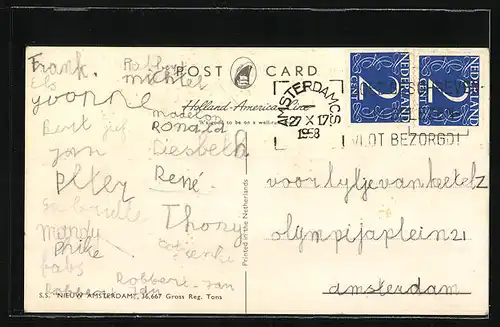 POST CARD
Holland-America Line
"It's good to be on a well-run ship"
Frank.
Robbert
Els
michiel
yvonne
madelon
Ronald
Bert jef
Liesbeth
jan
Peter
René.
gabrielle
Thony
mandy
phike
babs
Robbert-jan
S.S. "NIEUW AMSTERDAM", 36,667 Gross Reg. Tons
Printed in the Netherlands
NEDERLAND
2 CENT
NEDERLAND
2 CENT
AMSTERDAM CS
27 X 17
1958
VLOT BEZORGD!
voor lyltje van keetel
olympiaplein 21
amsterdam